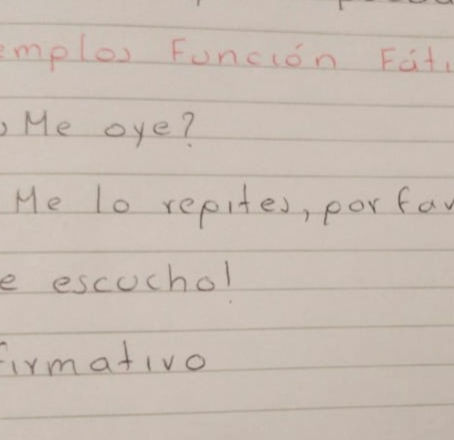 emplos Función Fáti
Me oye?
Me lo repites, por fav
e escucho!
firmativo